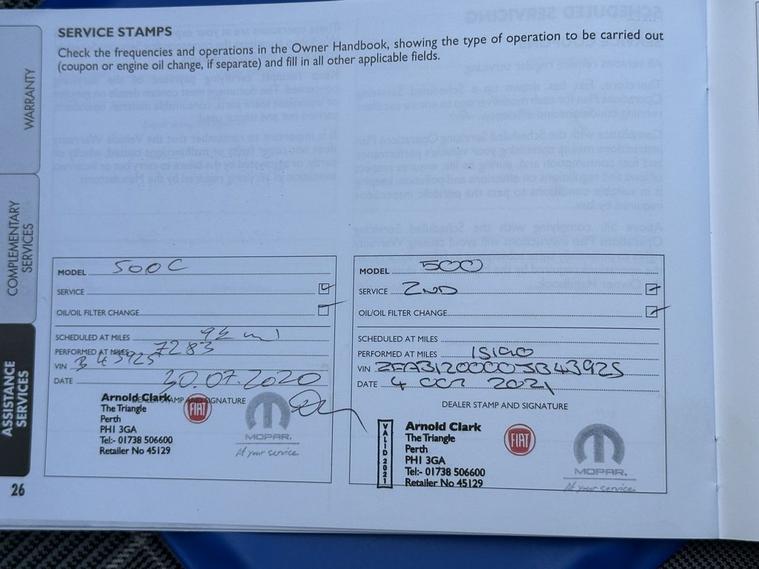 SERVICE STAMPS
Check the frequencies and operations in the Owner Handbook, showing the type of operation to be carried out
(coupon or engine oil change, if separate) and fill in all other applicable fields.
WARRANTY
COMPLEMENTARY
SERVICES
ASSISTANCE
SERVICES
26
MODEL 500C
SERVICE
OIL/OIL FILTER CHANGE
SCHEDULED AT MILES
PERFORMED AT MILES 7283
VIN B43925
DATE 30.07.2020
DEALER STAMP AND SIGNATURE
Arnold Clark
The Triangle
Perth
PH1 3GA
Tel:- 01738 506600
Retailer No 45129
FIAT
MOPAR.
At your service
MODEL 500
SERVICE 2ND
OIL/OIL FILTER CHANGE
SCHEDULED AT MILES
PERFORMED AT MILES
VIN
DATE 4 OCT 2021
DEALER STAMP AND SIGNATURE
VALID 2021
Arnold Clark
The Triangle
Perth
PH1 3GA
Tel:- 01738 506600
Retailer No 45129
FIAT
MOPAR.
At your service